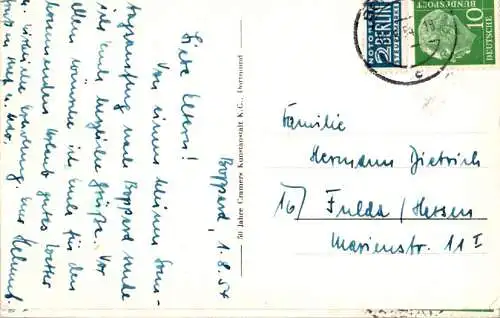 Boppard, 1.8.54
Liebe Eltern!
Von einem kleinen Sonn-
tagsausflug nach Boppard sende
ich Euch herzliche Grüße. Vor
allem wünsche ich Euch für den
kommenden Urlaub gutes Wetter
u. wirkliche Erholung. Euer Helmut.
50 Jahre Cramers Kunstanstalt K.-G., Dortmund
NOTOPFER
2 BERLIN
STEUERMARKE
DEUTSCHE
BUNDESPOST
10
Familie
Hermann Dietrich
16) Fulda / Hessen
Marienstr. 11 I